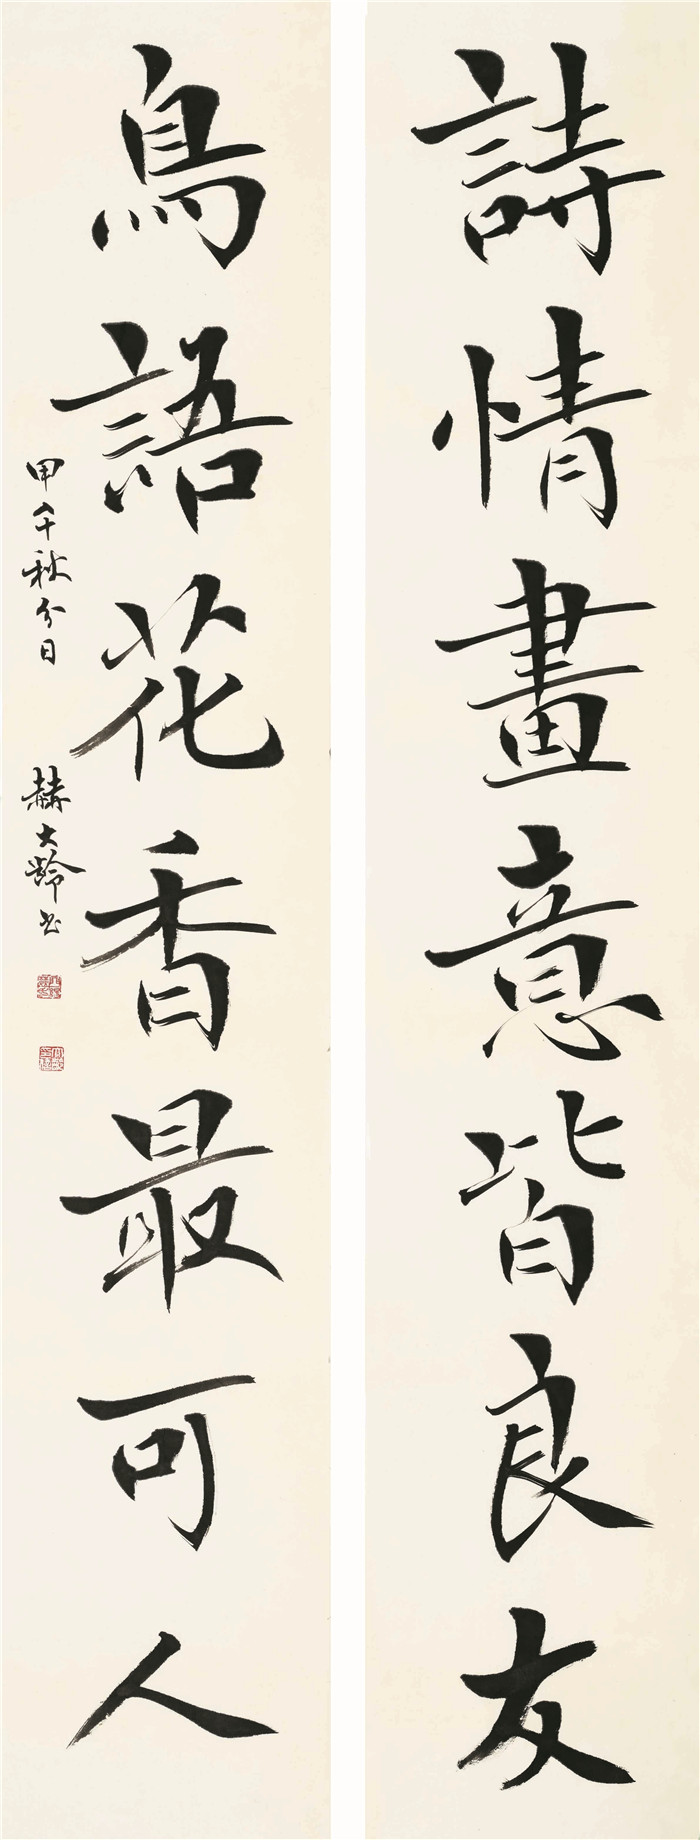 詩情畫意皆良友
鳥語花香最可人
甲午秋分日
赫大齡書